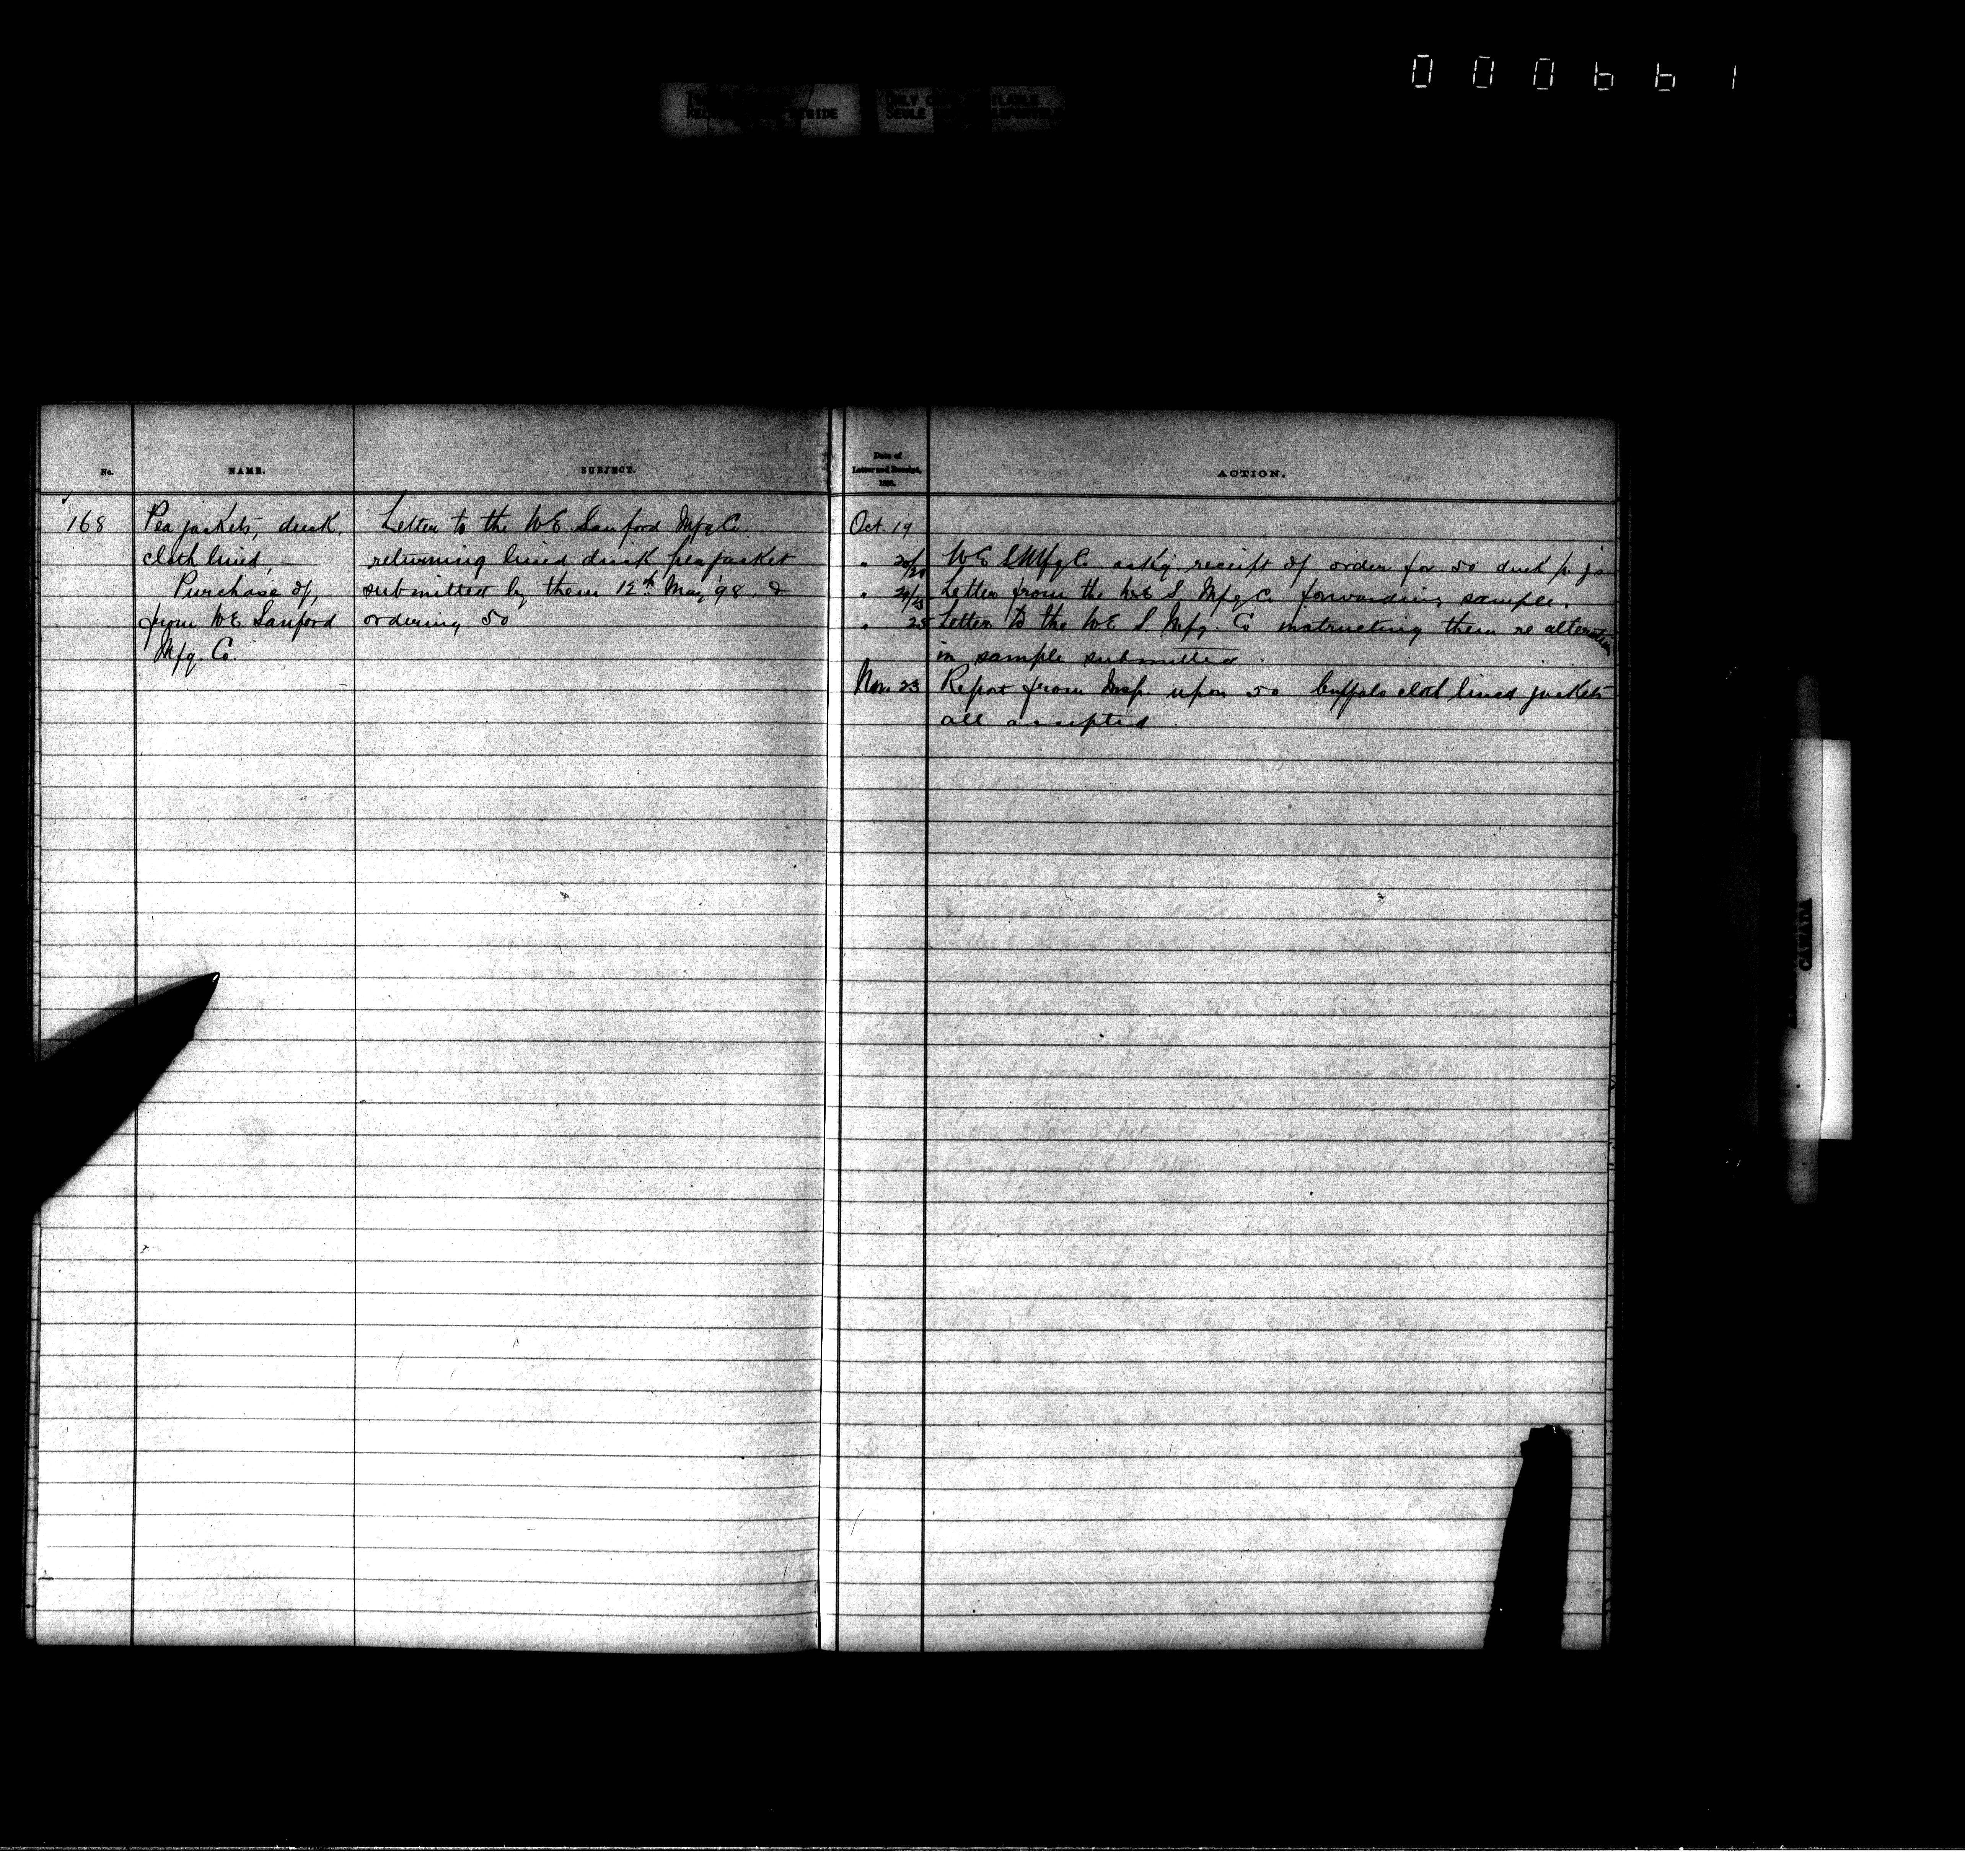 000661
No.
NAME.
SUBJECT.
Date of
Letter and Receipt,
ACTION.
168
Pea jackets, duck,
cloth lined,
Purchase of,
from W E Sanford
Mfg. Co.
Letter to the W. E. Sanford Mfg Co.
returning lined duck pea jacket
submitted by them 12th May '98. &
ordering 50
Oct. 19
" 20/20 W E S Mfg Co. askg. receipt of order for 50 duck p. js
" 24/25 Letter from the W E S. Mfg Co. forwarding sample.
" 25 Letter to the W E S. Mfg. Co instructing them re alteration
in sample submitted.
Nov. 23 Report from Insp. upon 50 buffalo cloth lined jackets
all accepted.
CANADA